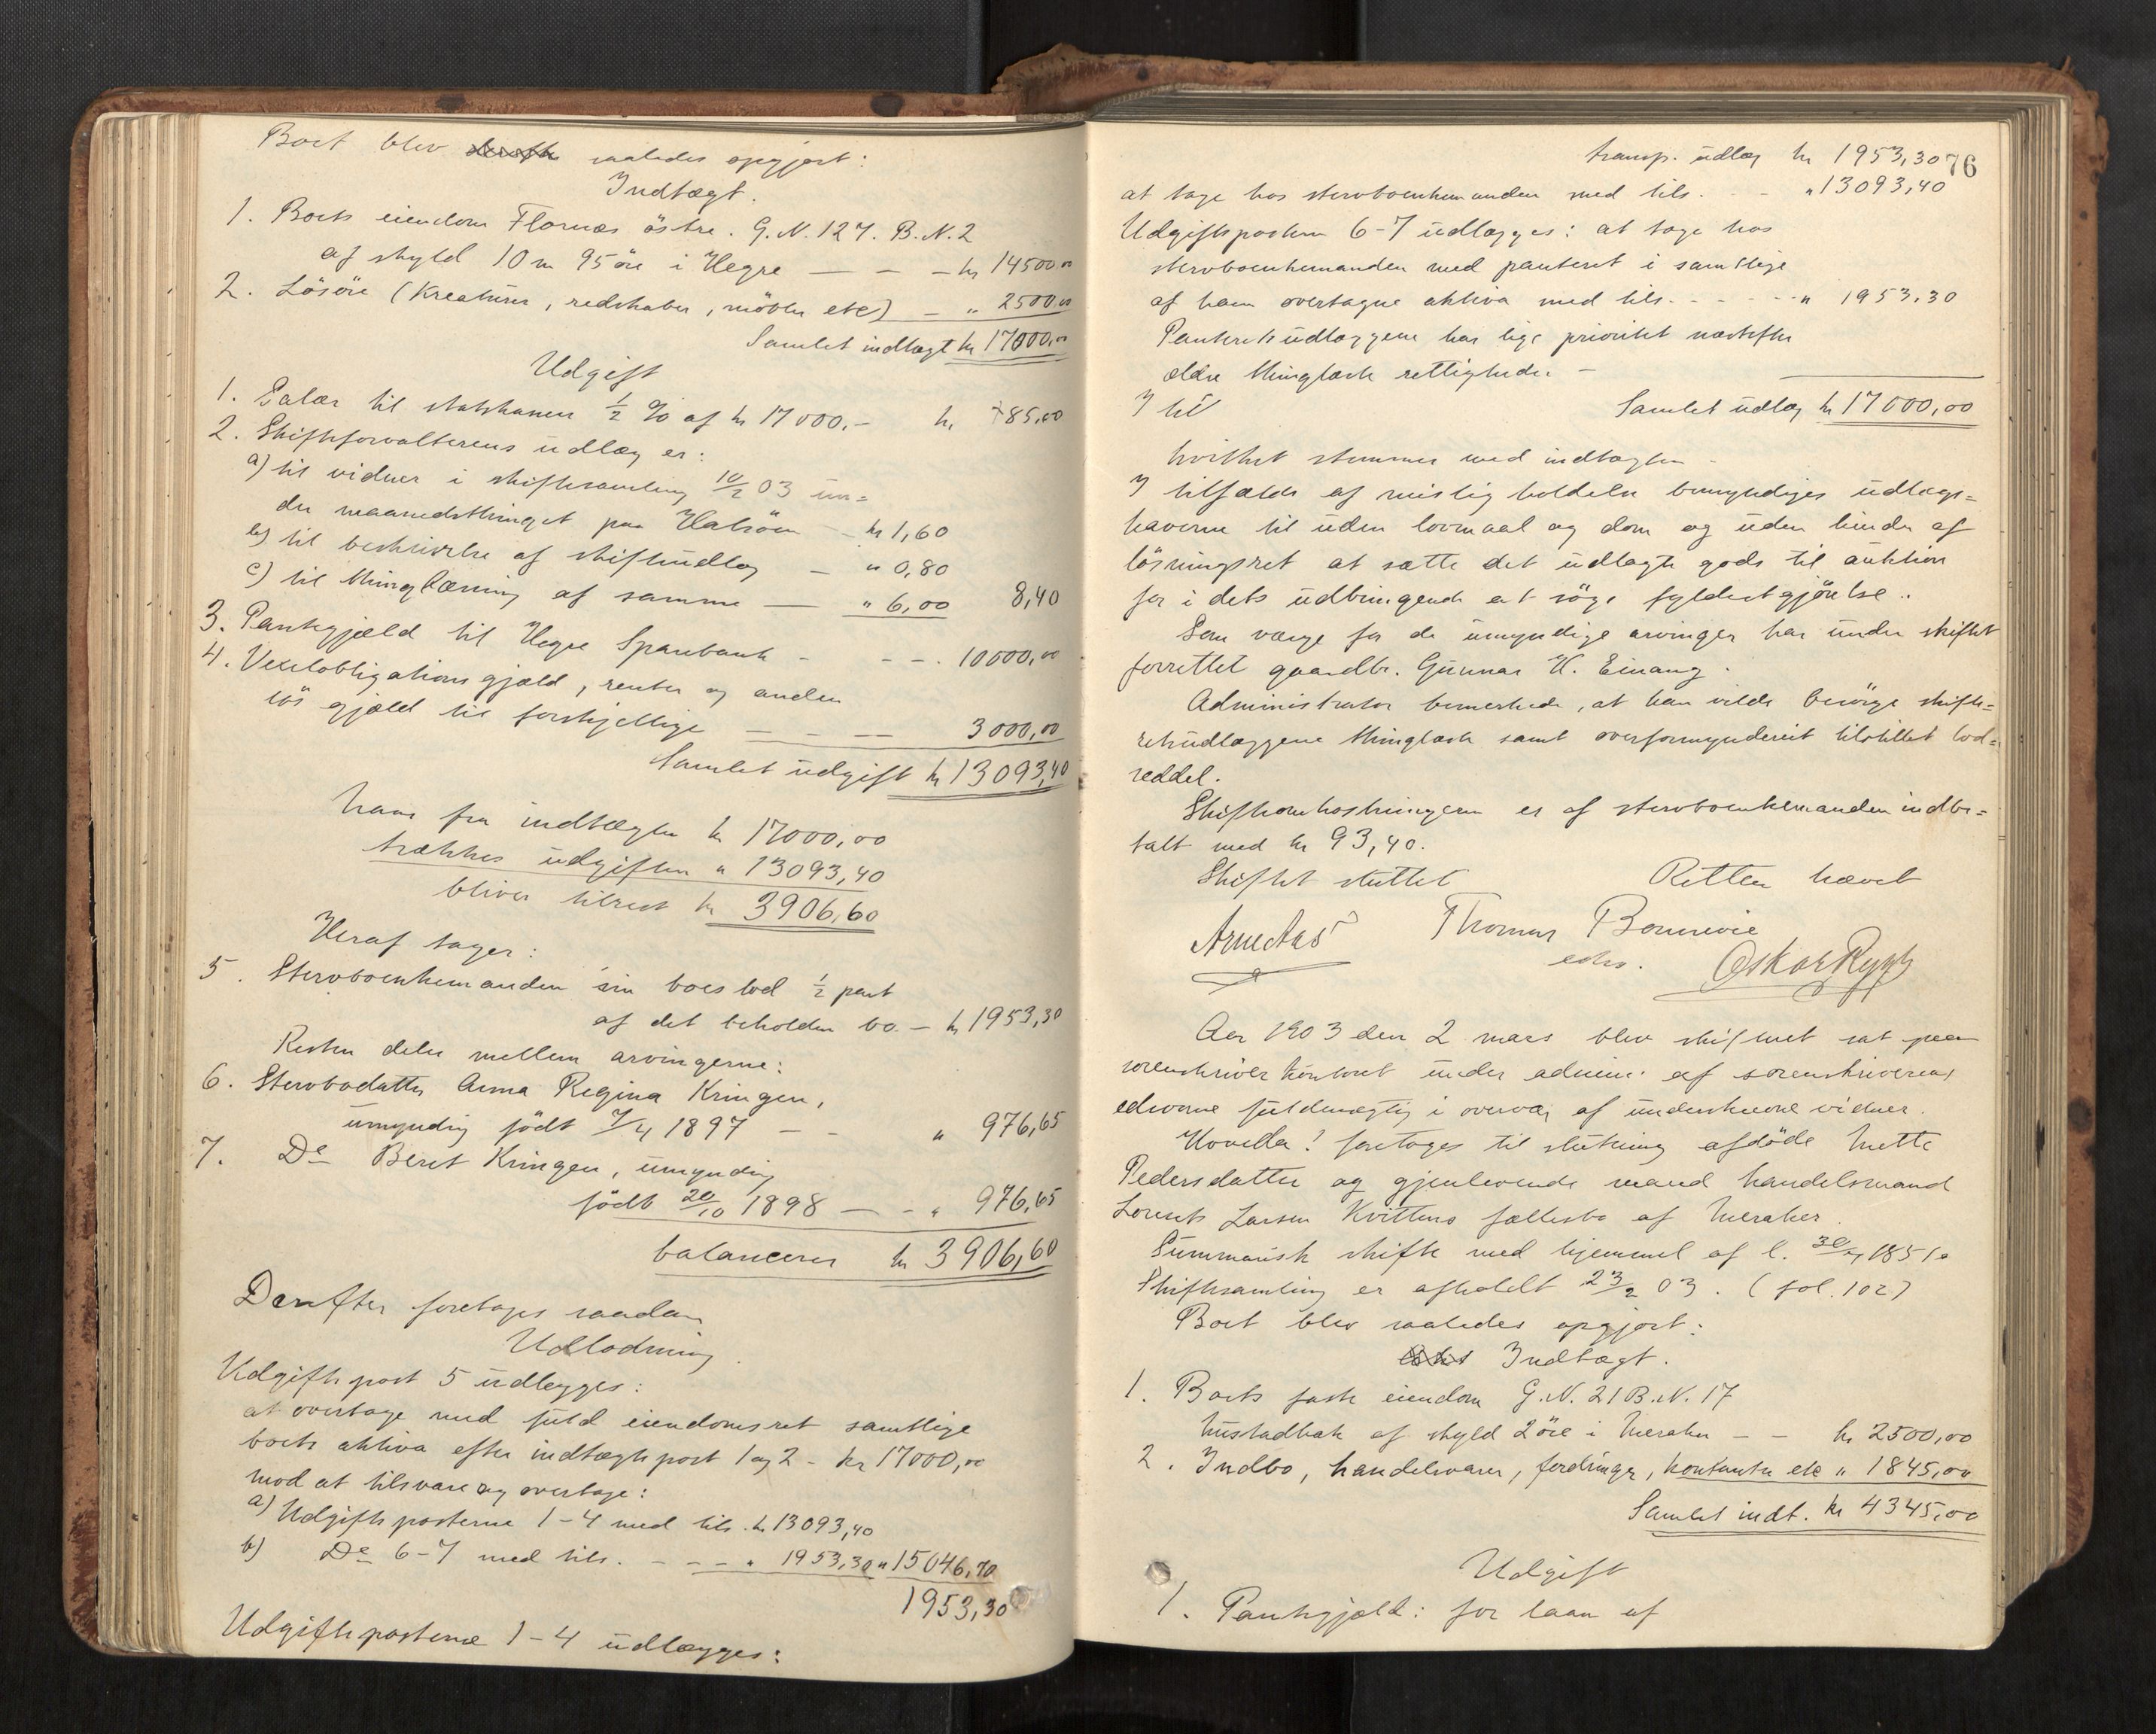 Boet blev saaledes opgjort:
Indtægt.
1. Boets eiendom Flornæs östre. G.N. 127. B.N. 2
af skyld 10 m 95 öre i Hegre — — — kr 14500.00
2. Lösöre (Kreaturer, redskaber, möbler etc) — " 2500.00
Samlet indtægt kr 17000.00
Udgift
1. Salær til statskassen 1/2 % af kr 17000.– kr. 85,00
2. Skifteforvalterens udlæg er:
a) til vidner i skiftesamling 10/2 03 un=
der maanedsthinget paa Halsöen – kr 1,60
b) til beskrivelse af skifteudlæg — " 0,80
c) til thinglæsning af samme — " 6,00 8,40
3. Pantegjæld til Hegre Sparebank - - - . 10000,00
4. Vexelobligationsgjæld, renter og anden
lös gjæld til forskjellige — — — 3000,00
Samlet udgift kr 13093,40
Naar fra indtægten kr 17000,00
trækkes udgiften " 13093,40
bliver tilrest kr 3906,60
Heraf tager:
5. Stervboenkemanden sin boeslod 1/2 part
af det beholdne bo. — kr 1953,30
Resten deles mellem arvingerne:
6. Stervbodatter Anna Regina Kringen,
umyndig födt 7/4 1897 — – " 976,65
7. Do Beret Kringen, umyndig
födt 20/10 1898 — – " 976,65
balancerer kr 3906,60
Derefter foretoges saadan
Udlodning.
Udgiftspost 5 udlægges:
at overtage med fuld eiendomsret samtlige
boets aktiva efter indtægtspost 1 og 2 - kr 17000,00
mod at tilsvare og overtage:
a) Udgiftsposterne 1–4 med tils. kr 13093,40
b) Do 6–7 med tils. - – – " 1953,30 " 15046,70
1953,30
Udgiftsposterne 1–4 udlægges:
transp. udlæg kr 1953,30 76
at tage hos stervboenkemanden med tils. - – " 13093,40
Udgiftsposterne 6–7 udlægges: at tage hos
stervboenkemanden med panteret i samtlige
af ham overtagne aktiva med tils. - - - - - " 1953,30
Panteretsudlæggene har lige prioritet næstefter
ældre thinglæste rettigheder –
I til Samlet udlæg kr 17000,00
hvilket stemmer med indtægten –
I tilfælde af misligholdelse bemyndiges udlægs=
haverne til uden lovmaal og dom og uden hinder af
lösningsret at sætte det udlagte gods til auktion
for i dets udbringende at söge fyldestgjörelse..
Som værge for de umyndige arvinger har under skiftet
forrettet gaardbr. Gunnar H. Einang.
Administrator bemerkede, at han vilde besörge skifte=
retsudlæggene thinglæst samt overformynderiet tilstillet lod=
seddel.
Skifteomkostningerne er af stervboenkemanden indbe=
talt med kr 93,40.
Skiftet sluttet Retten hævet
Arne Aas Thomas Bonnevie
edsv. Oskar Rygh
Aar 1903 den 2 mars blev skifteret sat paa
sorenskriverkontoret under admin. af sorenskriverens
edsvorne fuldmægtig i overvær af underskrevne vidner.
Hvorda! foretoges til slutning afdöde Mette
Pedersdatter og gjenlevende mand handelsmand
Lorents Larsen Kvittens fællesbo af Meraker.
Summarisk skifte med hjemmel af l. 30/7 1851.
Skiftesamling er afholdt 23/2 03. (fol. 102)
Boet blev saaledes opgjort:
Indtægt.
1. Boets faste eiendom G.N. 21 B.N. 17
Mustadbak af skyld 2 öre i Meraker – – kr 2500,00
2. Indbo, handelsvarer, fordringer, kontanter etc " 1845,00
Samlet indt. kr 4345,00
Udgift
1. Pantegjæld: for laan af